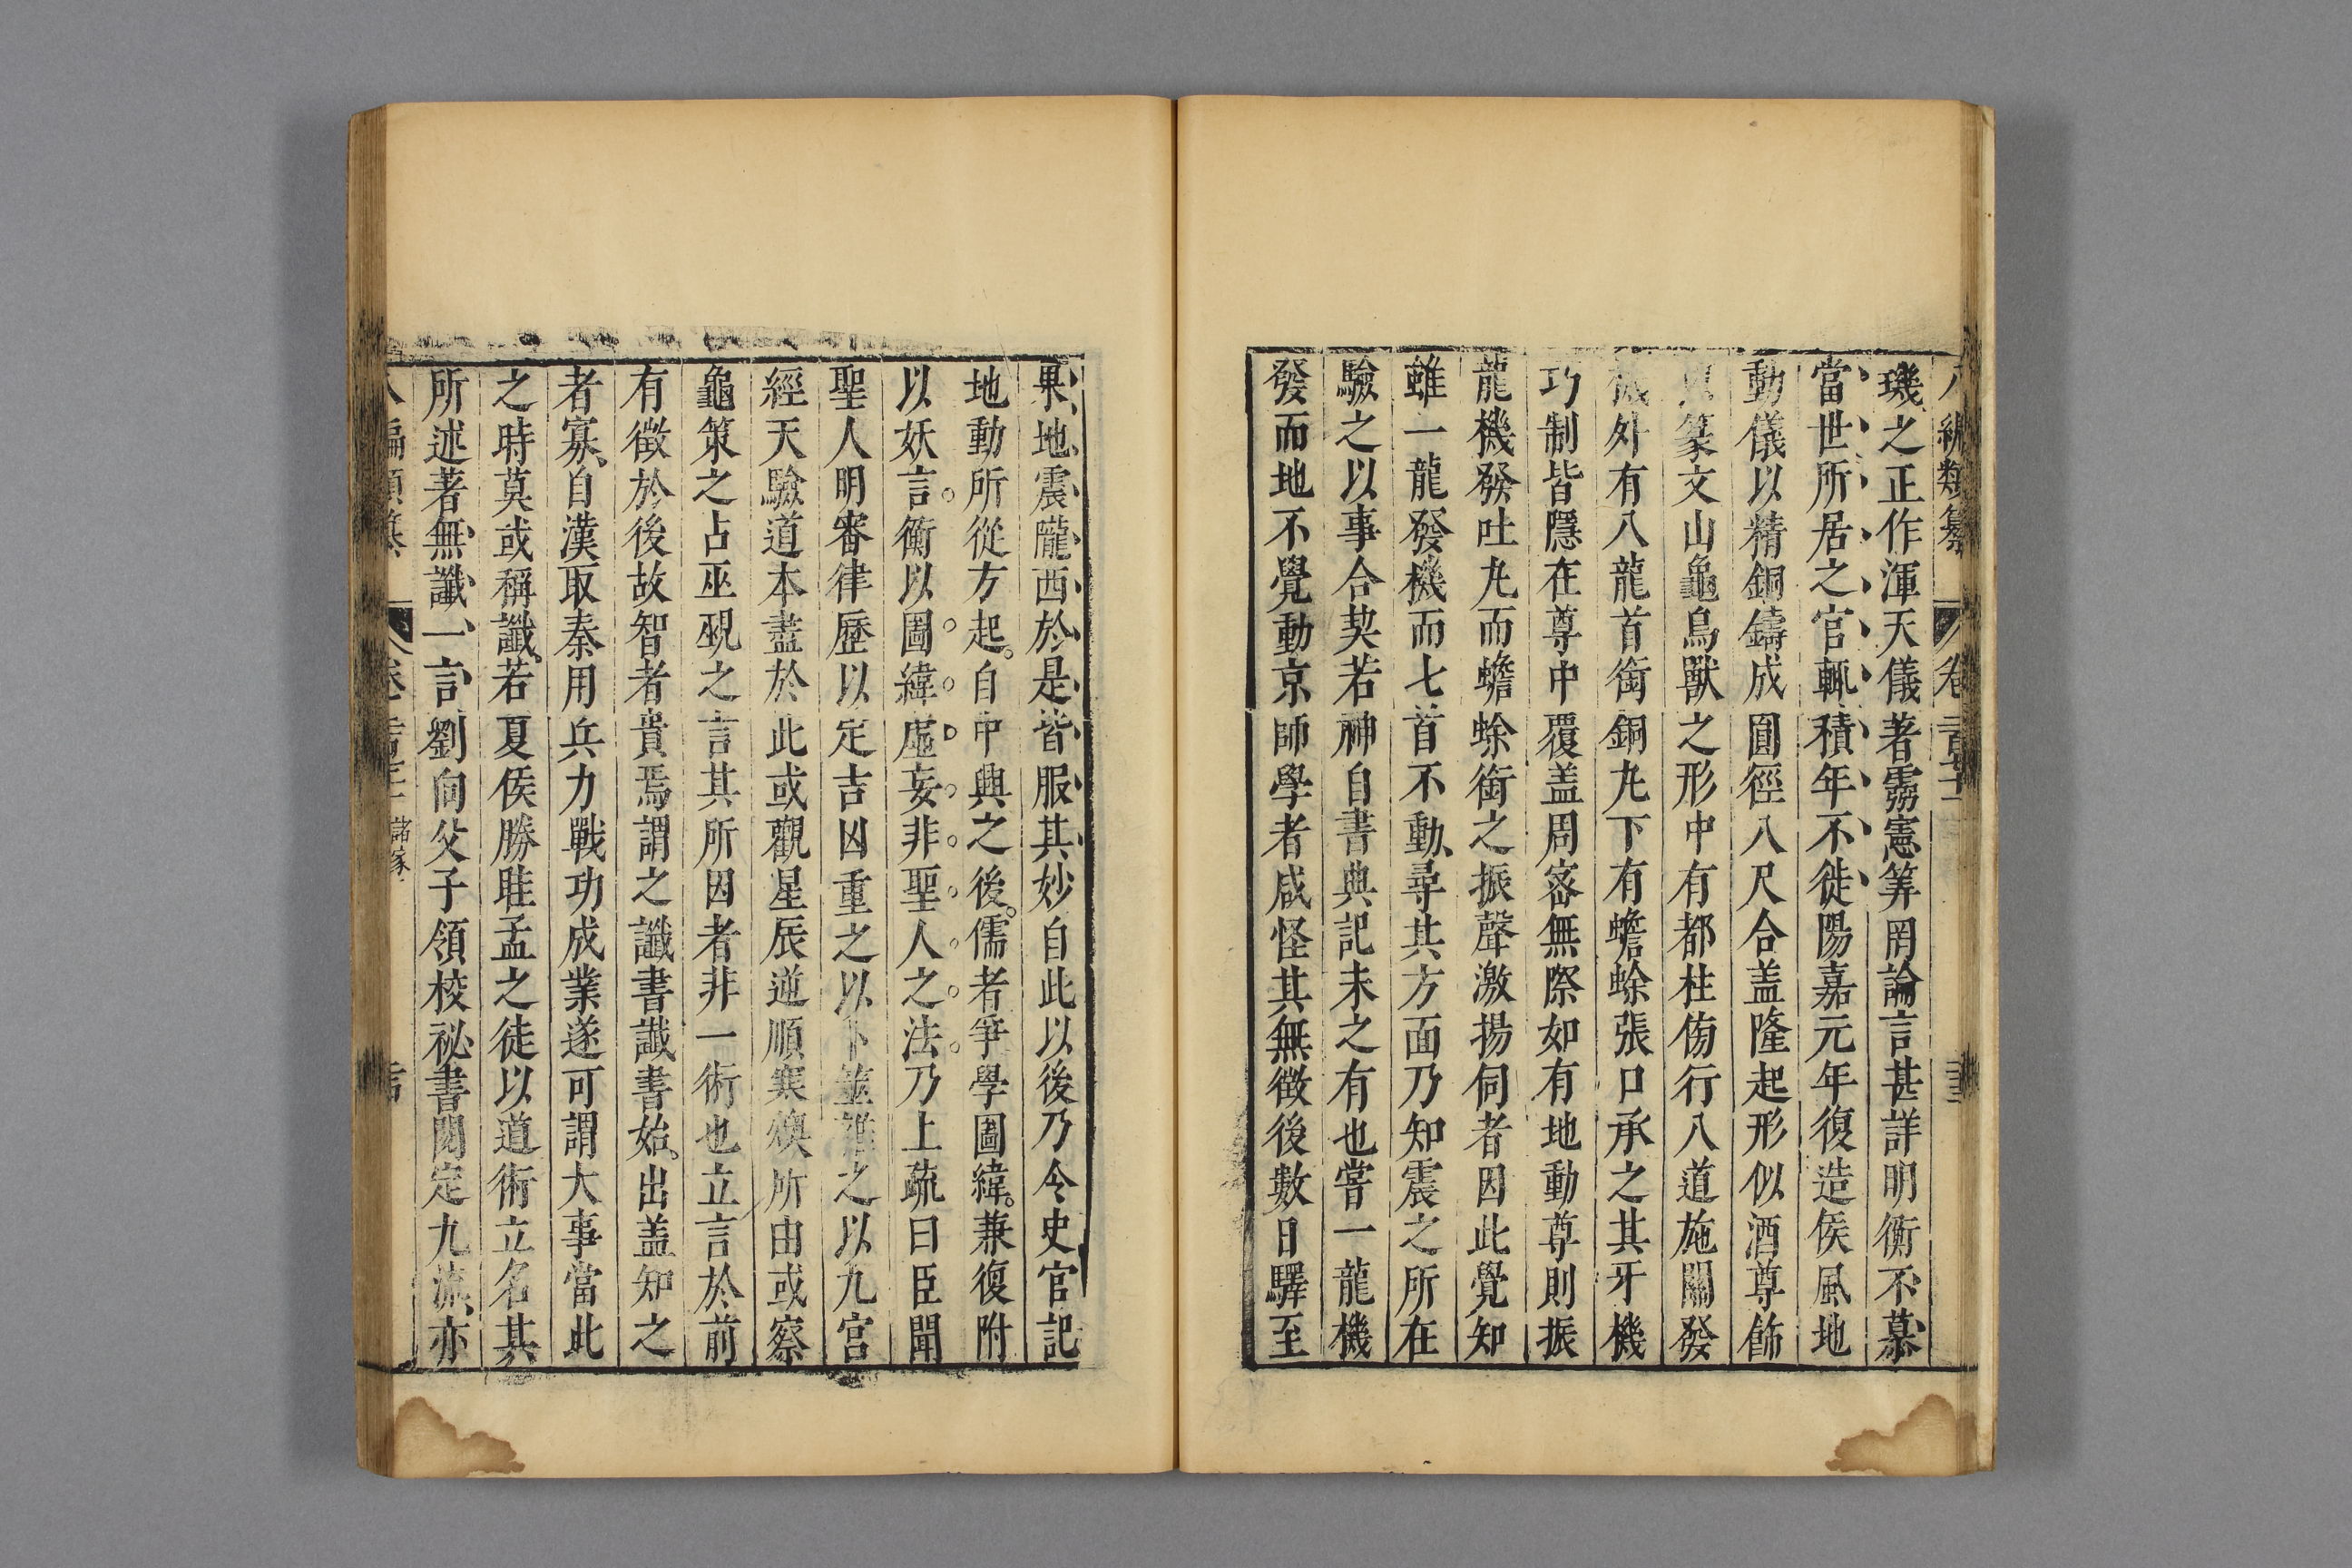 璣之正作渾天儀著靈憲筭罔論言甚詳明衡不慕
當世所居之官輒積年不徙陽嘉元年復造侯風地
動儀以精銅鑄成圓徑八尺合盖隆起形似酒尊飾
以篆文山龜鳥獸之形中有都柱傍行八道施關發
機外有八龍首銜銅九下有蟾蜍張口承之其牙機
巧制皆隱在尊中覆盖周宻無際如有地動尊則振
龍機發吐九而蟾蜍銜之振聲激揚伺者因此覺知
雖一龍發機而七首不動、尋其方面乃知震之所在
驗之以事合契若神自書典記未之有也嘗一龍機
發而地不覺動京師學者咸怪其無徵後數日驛至
果地震隴西於是皆服其妙自此以後乃令史官記
地動所從方起。自中興之後。儒者爭學圖緯。兼復附
以妖言衡以圖緯虛妄非聖人之法乃上疏曰臣聞
聖人明審律歷以定吉凶重之以卜筮雜之以九宫
經天驗道本盡於此或觀星辰逆順寒燠所由或察
龜策之占巫覡之言其所因者非一術也立言於前
有徵於後故智者貴焉謂之讖書讖書始、出盖知之
者寡、自漢取秦用兵力戰功成業遂可謂大事當此
之時莫或稱讖。若夏侯勝眭孟之徒以道術立名其
所述著無讖一言劉向父子領校祕書閱定九流、亦
八編類纂 卷 諸家